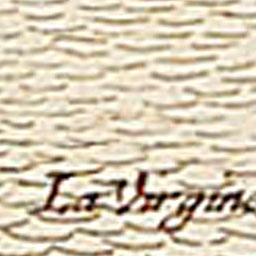 La Virgin